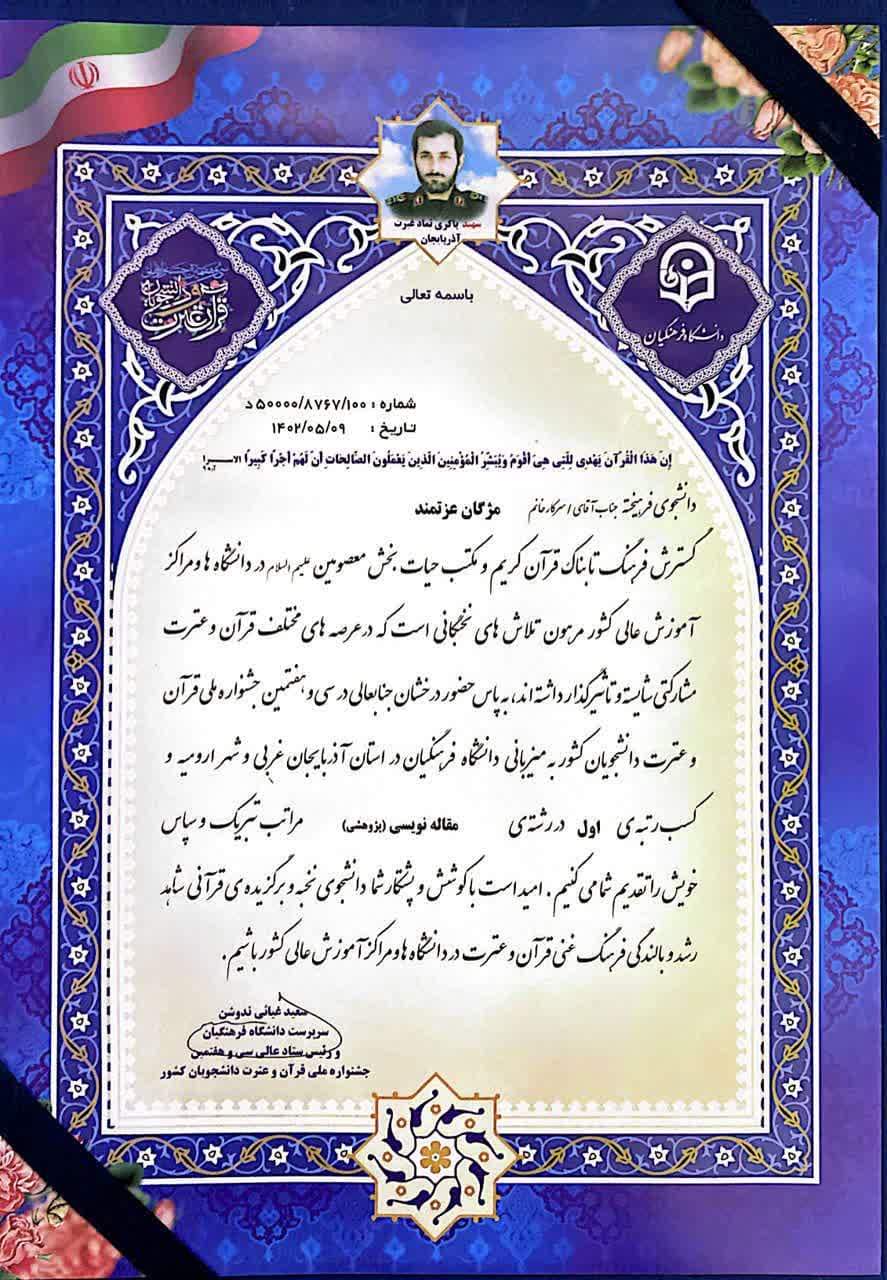 شهید باکری نماد غیرت
آذربایجان
دانشگاه فرهنگیان
باسمه تعالی
شماره : ۵۰۰۰۰/۸۷۶۷/۱۰۰ د
تاریخ : ۱۴۰۲/۰۵/۰۹
إِنَّ هَذَا الْقُرْآنَ یَهْدِی لِلَّتِی هِیَ أَقْوَمُ وَیُبَشِّرُ الْمُؤْمِنِینَ الَّذِینَ یَعْمَلُونَ الصَّالِحَاتِ أَنَّ لَهُمْ أَجْرًا کَبِیرًا الاسراء
دانشجوی فرهیخته جناب آقای / سرکار خانم مژگان عزتمند
گسترش فرهنگ تابناک قرآن کریم و مکتب حیات بخش معصومین علیهم السلام در دانشگاه ها و مراکز
آموزش عالی کشور مرهون تلاش های نخبگانی است که در عرصه های مختلف قرآن و عترت
مشارکتی شایسته و تأثیرگذار داشته اند، به پاس حضور درخشان جنابعالی در سی و هفتمین جشنواره ملی قرآن
و عترت دانشجویان کشور به میزبانی دانشگاه فرهنگیان در استان آذربایجان غربی و شهر ارومیه و
کسب رتبه ی اول در رشته ی مقاله نویسی (پژوهشی) مراتب تبریک و سپاس
خویش را تقدیم شما می کنیم . امید است با کوشش و پشتکار شما دانشجوی نخبه و برگزیده ی قرآنی شاهد
رشد و بالندگی فرهنگ غنی قرآن و عترت در دانشگاه ها و مراکز آموزش عالی کشور باشیم .
سعید غیاثی ندوشن
سرپرست دانشگاه فرهنگیان
و رئیس ستاد عالی سی و هفتمین
جشنواره ملی قرآن و عترت دانشجویان کشور